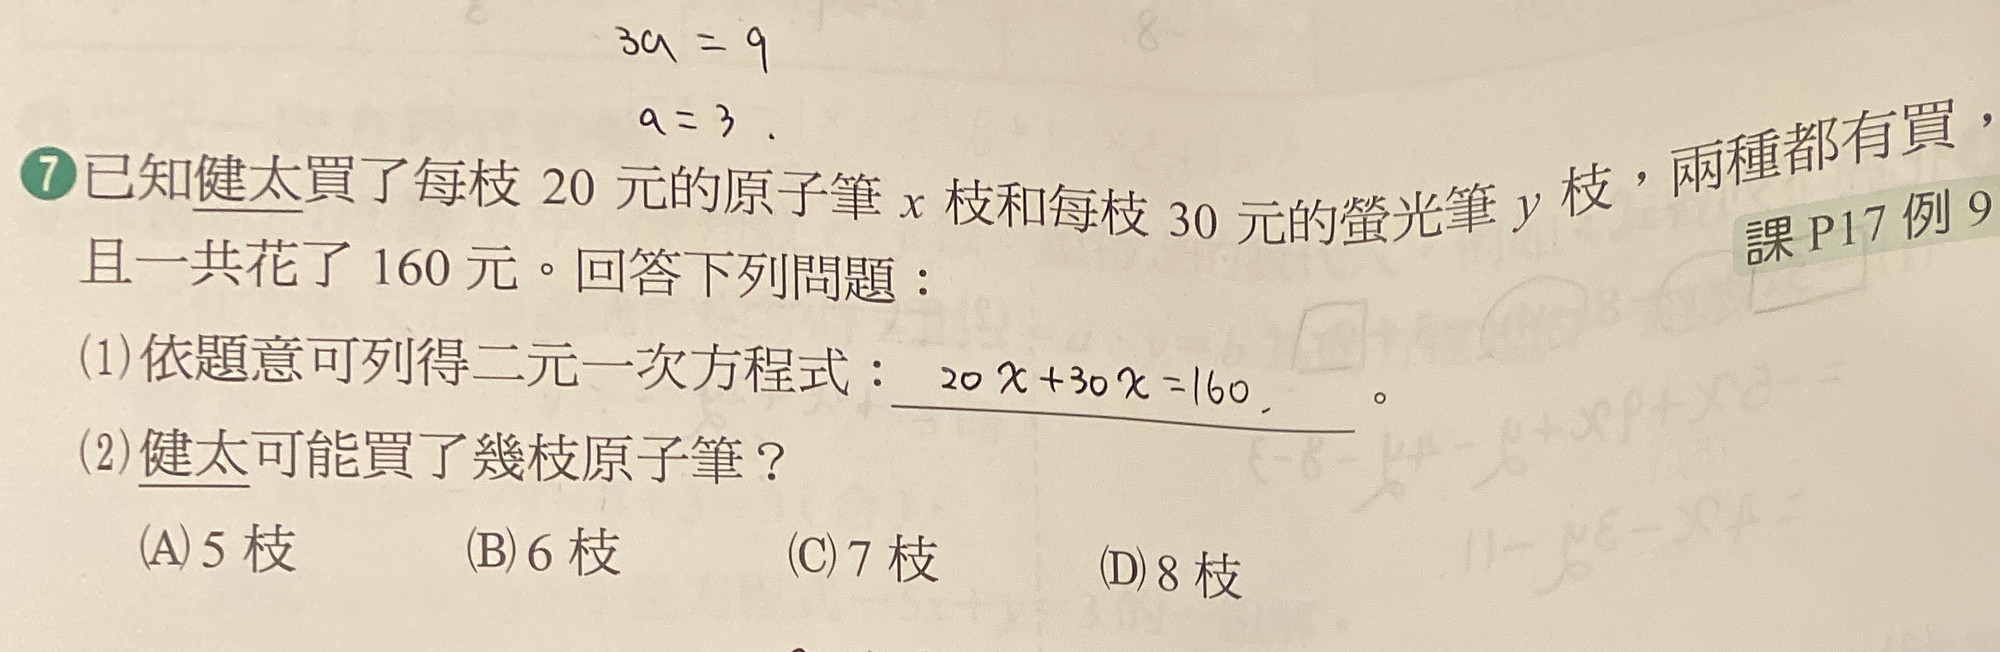 3a = 9
a = 3 .
7 已知健太買了每枝 20 元的原子筆 x 枝和每枝 30 元的螢光筆 y 枝，兩種都有買，
課 P17 例 9
且一共花了 160 元。回答下列問題：
(1)依題意可列得二元一次方程式： 20x+30x=160. 。
(2)健太可能買了幾枝原子筆？
(A) 5 枝 (B) 6 枝 (C) 7 枝 (D) 8 枝